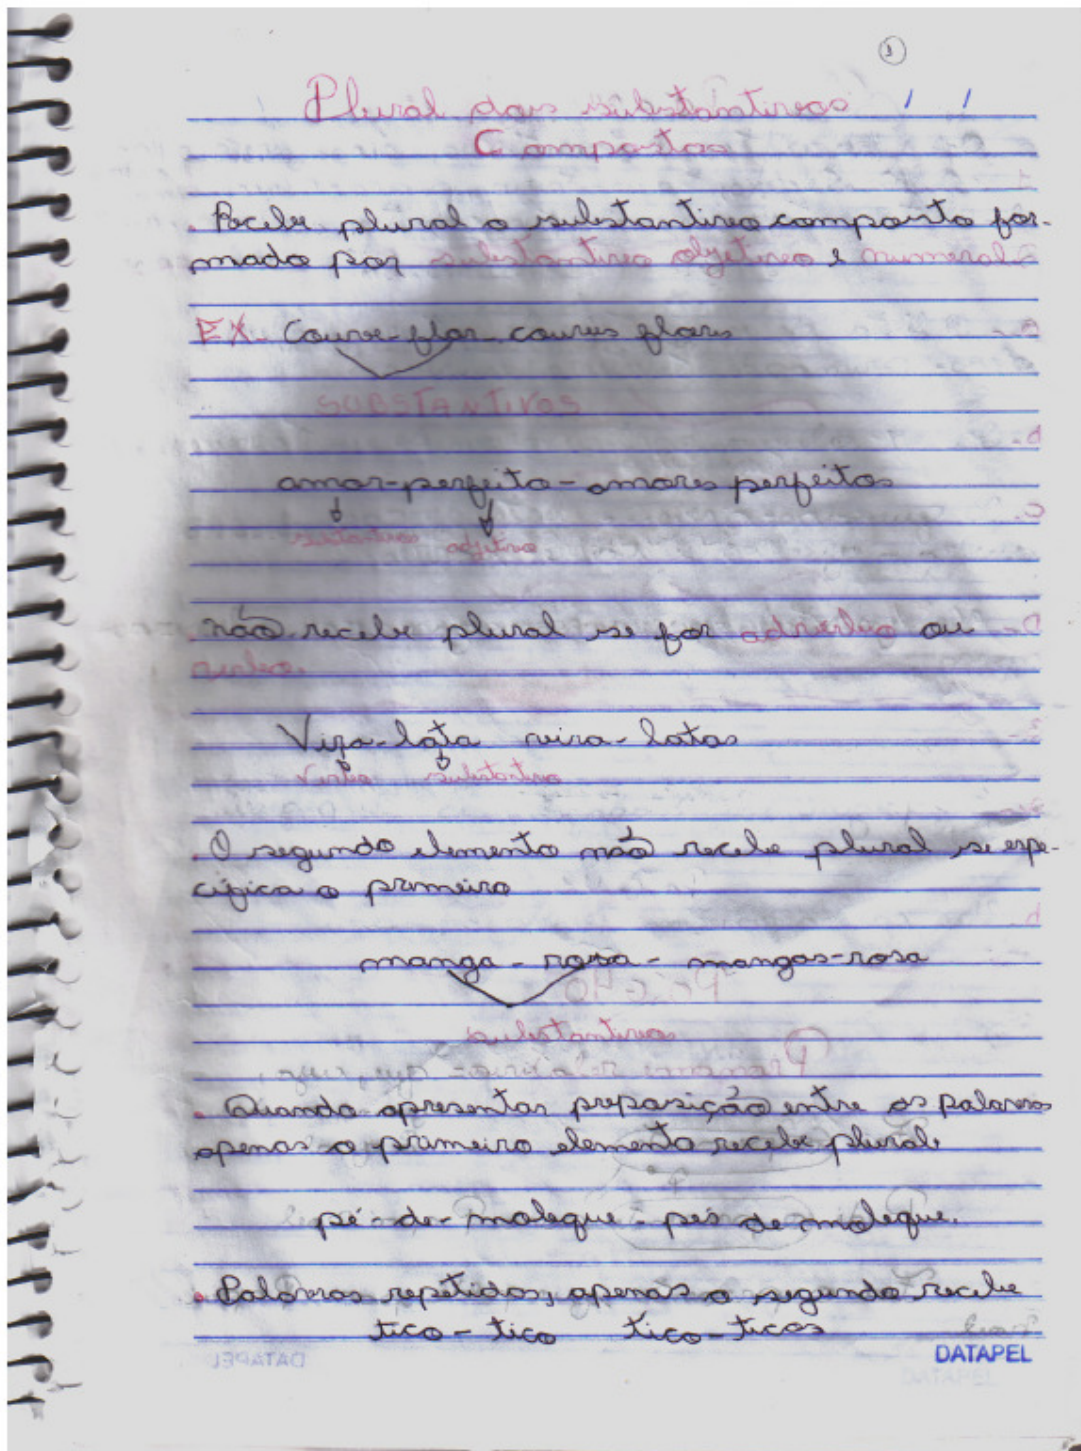 1
Plural dos substantivos / /
Compostos
. Recebe plural o substantivo composto for-
mado por substantivo adjetivo e numeral.
EX- Couve-flor-couves flores
SUBSTANTIVOS
amor-perfeito-amores perfeitos
substantivo adjetivo
. não recebe plural se for advérbio ou
verbo.
Vira-lata vira-latas
Verbo substantivo
. O segundo elemento não recebe plural se espe-
cifica o primeiro
manga-rosa-mangas-rosa
substantivos
. Quando apresentar preposição entre as palavras
apenas o primeiro elemento recebe plural.
pé-de-moleque-pés de moleque.
. Palavras repetidas, apenas o segundo recebe
tico-tico tico-ticos
DATAPEL